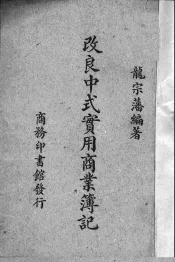 龍宗藩編著
改良中式實用商業簿記
商務印書館發行